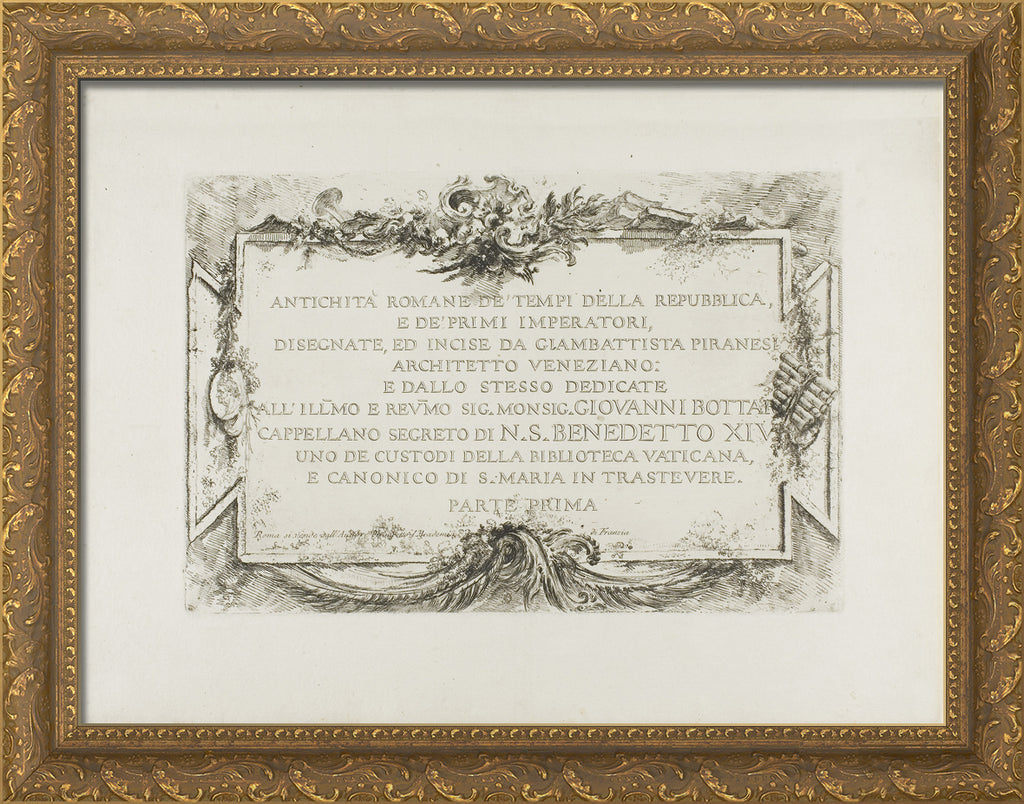 ANTICHITÀ ROMANE DE' TEMPI DELLA REPUBBLICA,
E DE' PRIMI IMPERATORI,
DISEGNATE, ED INCISE DA GIAMBATTISTA PIRANESI
ARCHITETTO VENEZIANO:
E DALLO STESSO DEDICATE
ALL' ILL̄MO E REV̄MO SIG. MONSIG. GIOVANNI BOTTARI
CAPPELLANO SEGRETO DI N.S. BENEDETTO XIV
UNO DE CUSTODI DELLA BIBLIOTECA VATICANA,
E CANONICO DI S. MARIA IN TRASTEVERE.
PARTE PRIMA
Roma si vende dall' Autore dirimpetto l'Academia di Francia